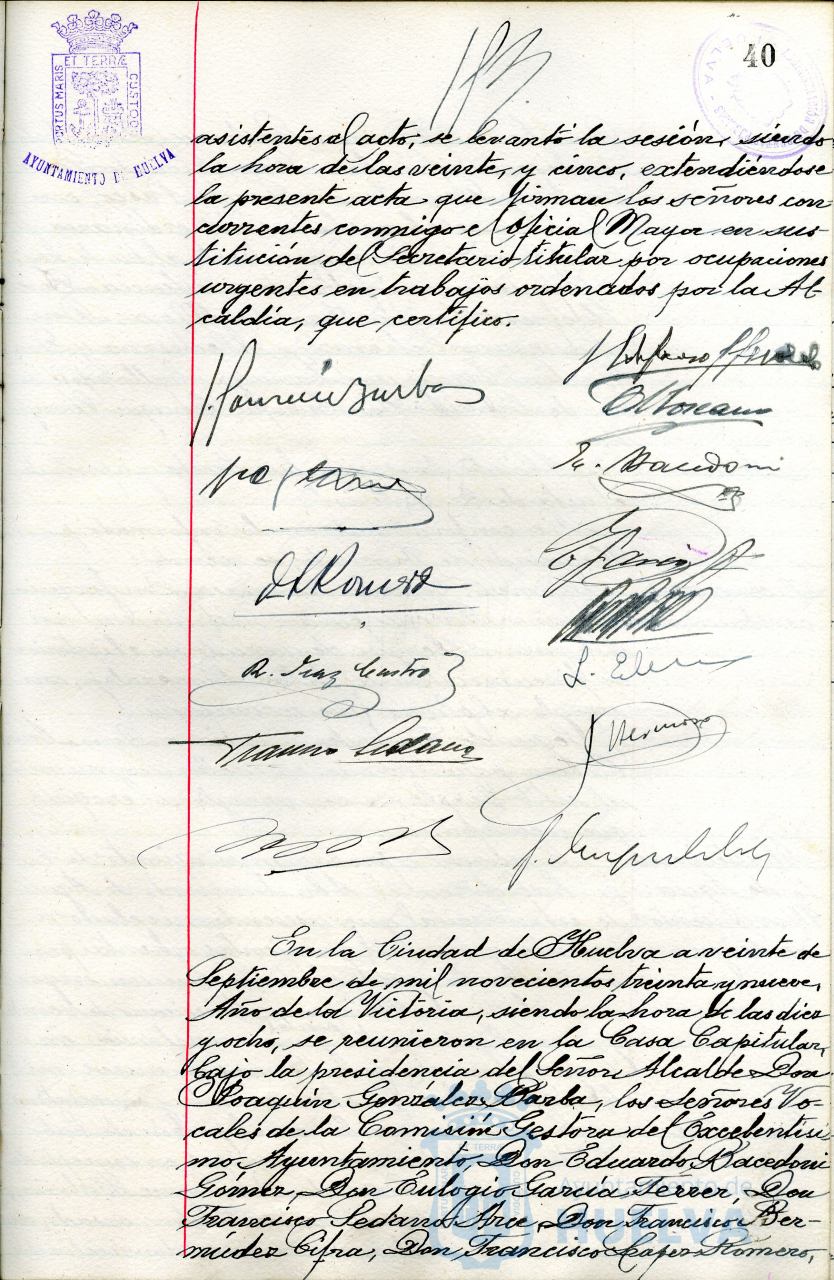 40
ET TERRÆ
PORTUS MARIS
CUSTODI
AYUNTAMIENTO DE HUELVA
HUELVA
asistentes al acto, se levantó la sesión, siendo
la hora de las veinte, y cinco, extendiéndose
la presente acta que firman los señores con-
currentes conmigo el Oficial Mayor en sus-
titución del Secretario titular por ocupaciones
urgentes en trabajos ordenados por la Al-
caldía, que certifico.
E. Bacedoni
Romero
R. Diaz Castro
Hermoso
En la Ciudad de Huelva a veinte de
Septiembre de mil novecientos treinta y nueve,
Año de la Victoria, siendo la hora de las diez
y ocho, se reunieron en la Casa Capitular,
bajo la presidencia del Señor Alcalde Don
Joaquín González Barba, los Señores Vo-
cales de la Comisión Gestora del Excelentísi-
mo Ayuntamiento, Don Eduardo Bacedoni
Gómez, Don Eulogio García Ferrer, Don
Francisco Sedano Arce, Don Francisco Ber-
múdez Cifra, Don Francisco López Romero,
Ayuntamiento de
HUELVA